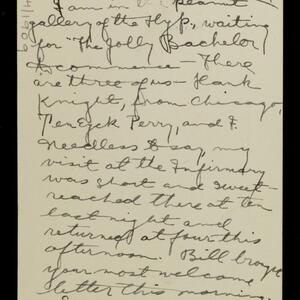 I am in peanut
gallery of the Hyp, waiting
for "The Jolly Bachelor"
to commence - There
are three of us - Hank
Knight, from Chicago,
TenEyck Perry, and I.
Needless to say, my
visit at the Infirmary
was short and sweet -
reached there at ten
last night and
returned at four this
afternoon. Bill brought
your most welcome
letter this morning.